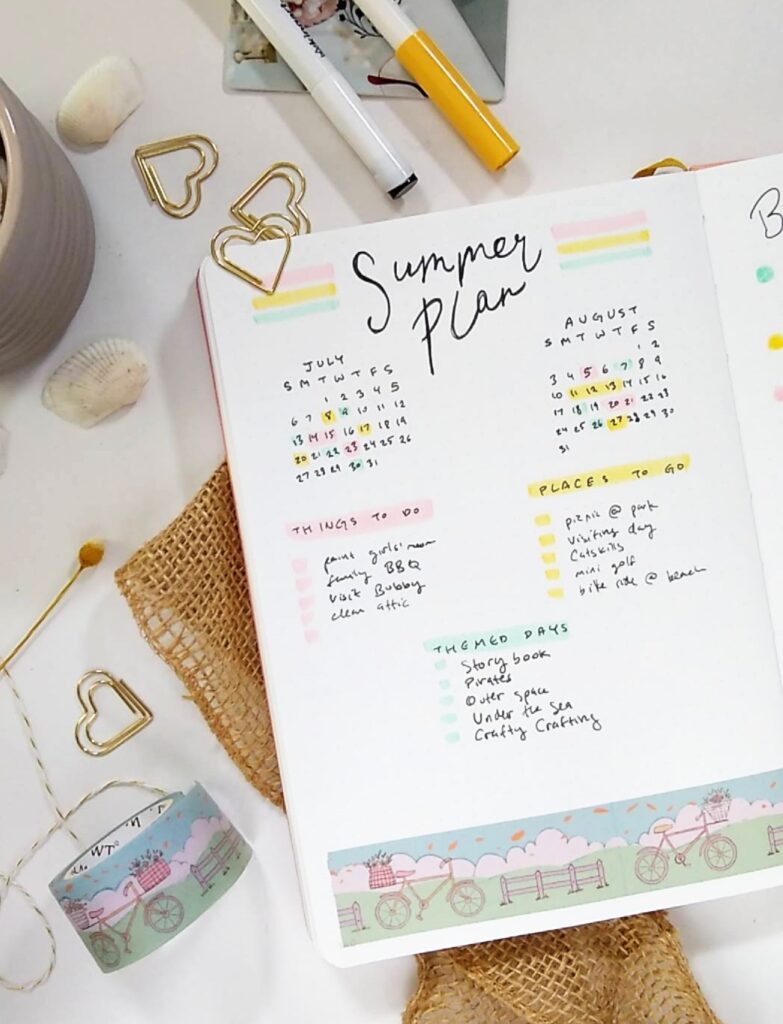 Summer
Plan
B
JULY
S M T W T F S
1 2 3 4 5
6 7 8 9 10 11 12
13 14 15 16 17 18 19
20 21 22 23 24 25 26
27 28 29 30 31
AUGUST
S M T W T F S
1 2
3 4 5 6 7 8 9
10 11 12 13 14 15 16
17 18 19 20 21 22 23
24 25 26 27 28 29 30
31
THINGS TO DO
paint girls' room
family BBQ
visit Bubby
clean attic
PLACES TO GO
picnic @ park
visiting day
Catskills
mini golf
bike ride @ beach
THEMED DAYS
Story book
Pirates
Outer space
Under the Sea
Crafty Crafting